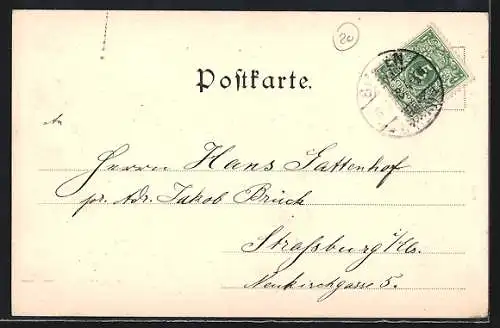 20
Postkarte.
An
Herrn Hans Sattenhof
pr. Adr. Jakob Bruch
Strassburg i/Els.
Neukirchgasse 5.